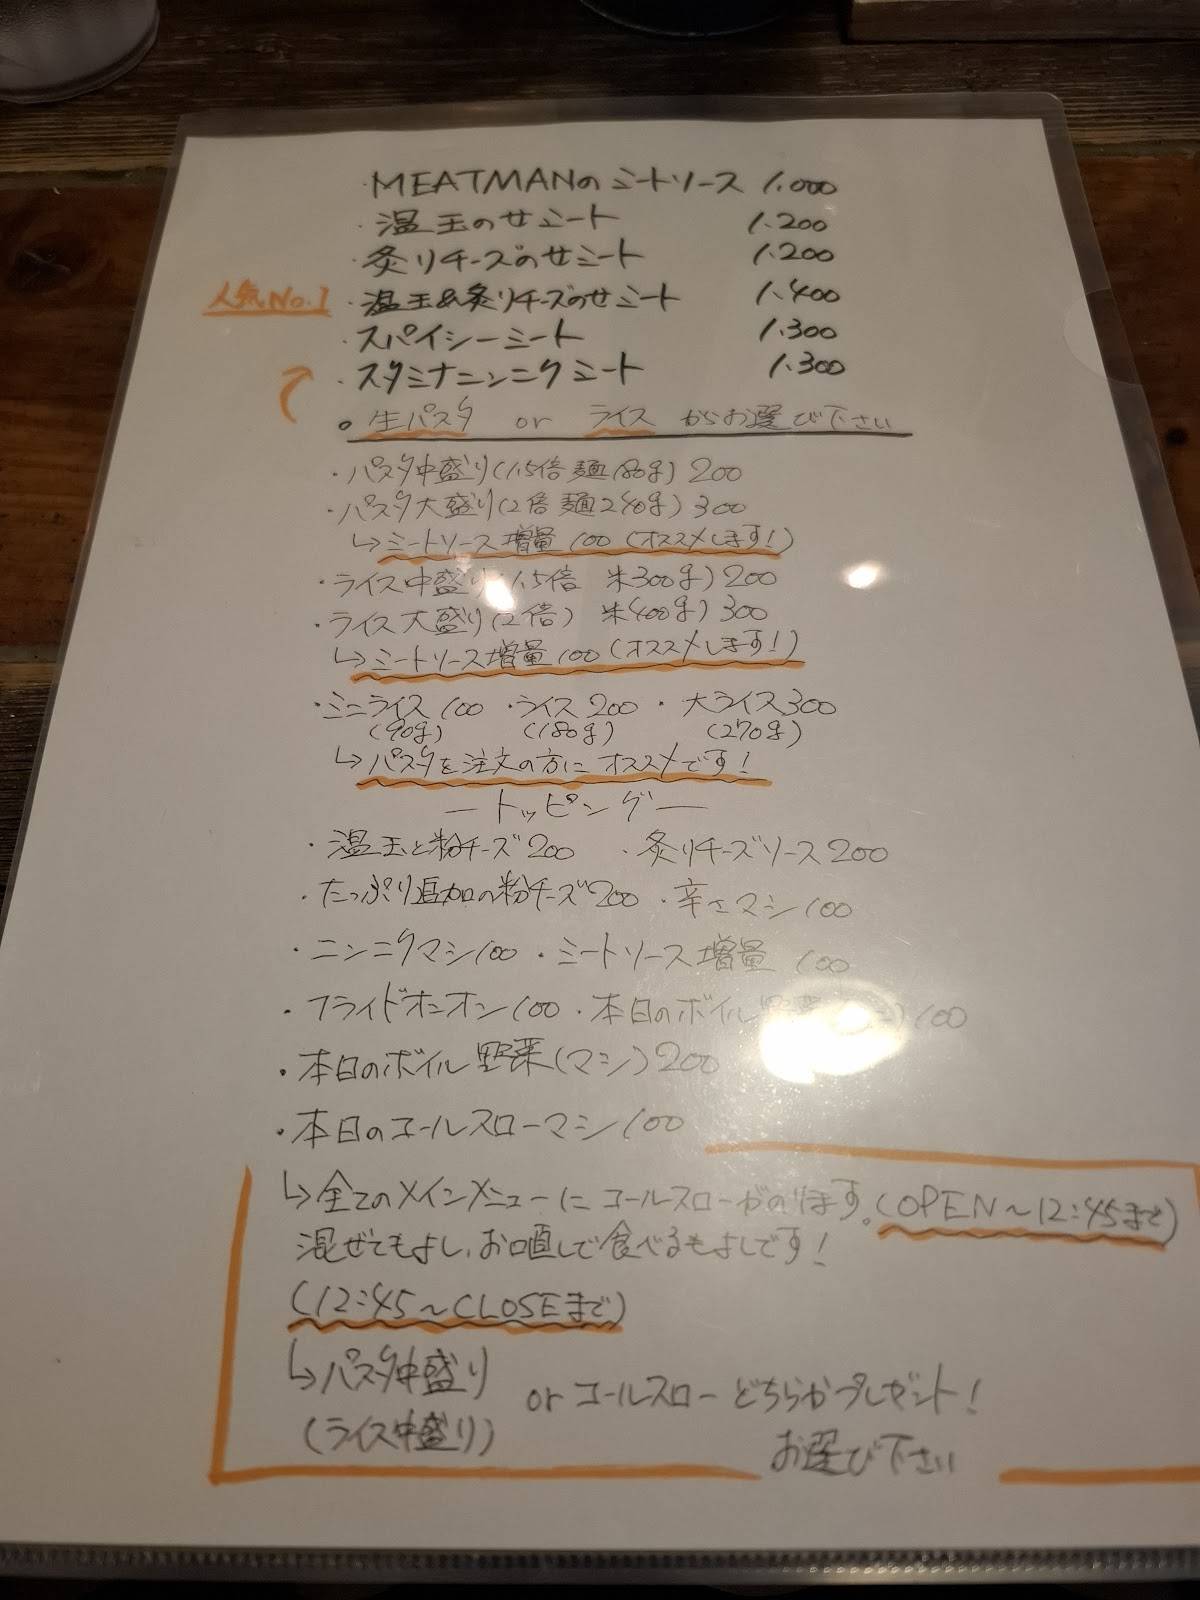 ・MEATMANのミートソース 1.000
・温玉のせミート 1.200
・炙りチーズのせミート 1.200
人気No.1 ・温玉&炙りチーズのせミート 1.400
・スパイシーミート 1.300
・スタミナニンニクミート 1.300
。生パスタ or ライス からお選び下さい
・パスタ中盛り(1.5倍 麺180g) 200
・パスタ大盛り(2倍 麺240g) 300
↳ミートソース増量 100 (オススメします!)
・ライス中盛り(1.5倍 米300g) 200
・ライス大盛り(2倍) 米400g) 300
↳ミートソース増量 100 (オススメします!)
・ミニライス 100 ・ライス 200 ・大ライス 300
(90g) (180g) (270g)
↳パスタを注文の方に オススメです!
—トッピング—
・温玉と粉チーズ 200 ・炙りチーズソース 200
・たっぷり追加の粉チーズ 200 ・辛さマシ 100
・ニンニクマシ 100 ・ミートソース増量 100
・フライドオニオン 100 ・本日のボイル野菜 100
・本日のボイル野菜(マシ) 200
・本日のコールスローマシ 100
↳全てのメインメニューに コールスローがのります。(OPEN〜12:45まで)
混ぜてもよし、お口直しで食べるもよしです!
(12:45〜CLOSEまで)
↳パスタ中盛り
(ライス中盛り) or コールスロー どちらかプレゼント!
お選び下さい